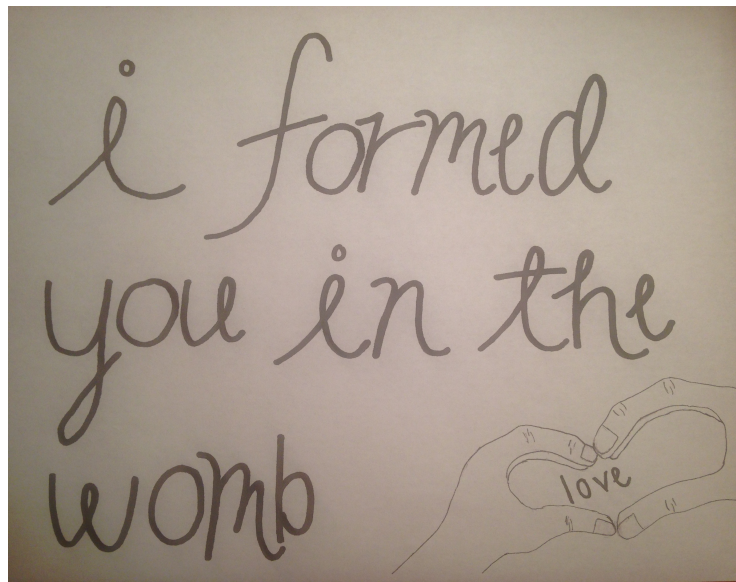 i formed
you in the
womb
love